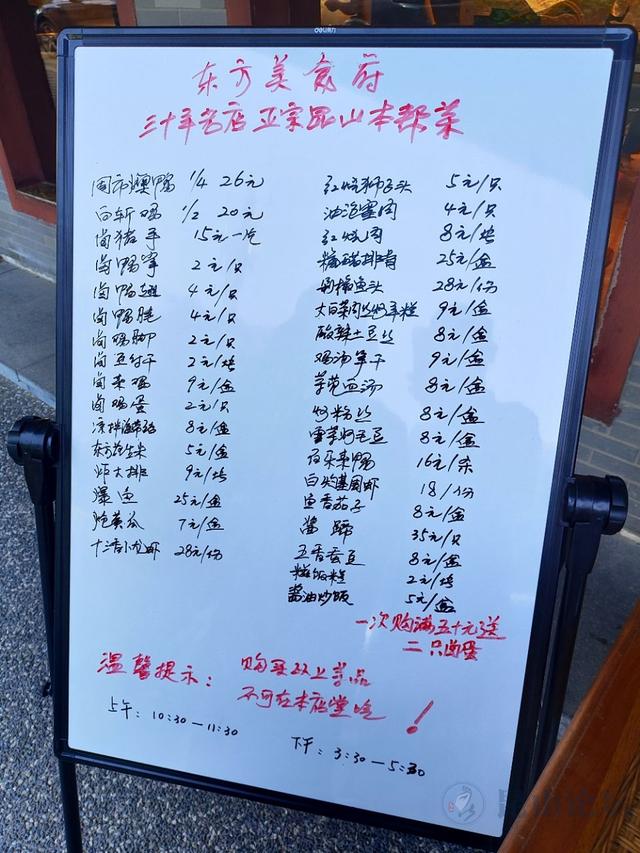 deli得力
东方美食府
三十年老店 正宗昆山本帮菜
周市爊鸭 1/4 26元
白斩鸡 1/2 20元
卤猪手 15元一只
卤鸭 2元/只
卤鸭翅 4元/只
卤鸭腿 4元/只
卤鸭脚 2元/只
卤豆付干 2元/块
卤素鸡 9元/盒
卤鸡蛋 2元/只
凉拌海蜇 8元/盒
东方花生米 5元/盒
炸大排 9元/块
爆鱼 25元/盒
脆黄瓜 7元/盒
十三香小龙虾 28元/份
红烧狮子头 5元/只
油泡塞肉 4元/只
红烧肉 8元/块
糖醋排骨 25元/盒
剁椒鱼头 28元/份
大白菜肉丝炒年糕 9元/盒
酸辣土豆丝 8元/盒
鸡汤笋干 9元/盒
荠菜血汤 8元/盒
炒粉丝 8元/盒
雪菜炒毛豆 8元/盒
百乐来鸭 16元/
白灼基围虾 18/份
鱼香茄子 8元/盒
酱蹄 35元/只
五香蚕豆 8元/盒
粢饭糕 2元/块
酱油炒饭 5元/盒
一次购满五十元送
二只卤蛋
温馨提示: 购买以上菜品
不可在本店堂吃!
上午: 10:30—11:30
下午: 3:30—5:30
昆山论坛